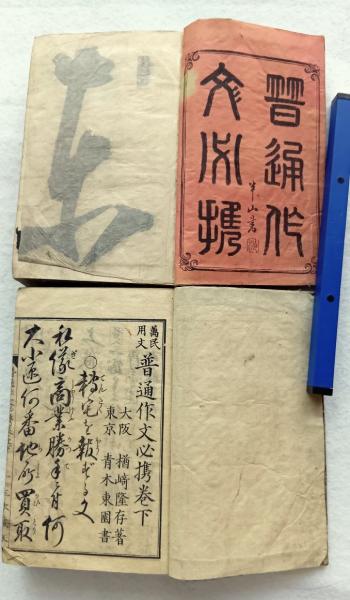 普通作
文必携
半山書
萬民
用文
普通作文必携卷下
大阪 楢崎隆存著
東京 青木東園書
轉宅を報ずる文
私儀商業勝手ニ付何
大小区何番地所買取